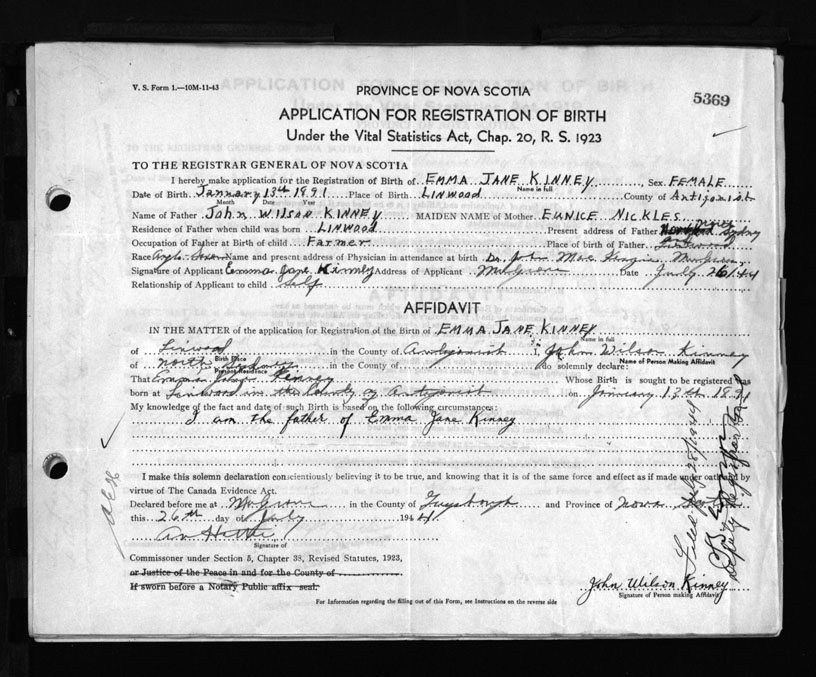 V. S. Form 1.—10M-11-43
PROVINCE OF NOVA SCOTIA
5369
APPLICATION FOR REGISTRATION OF BIRTH
Under the Vital Statistics Act, Chap. 20, R. S. 1923
TO THE REGISTRAR GENERAL OF NOVA SCOTIA
I hereby make application for the Registration of Birth of EMMA JANE KINNEY, Sex FEMALE
Name in full
Date of Birth January 13th 1891 Place of Birth LINWOOD County of Antigonish
Month Day Year
Name of Father John Wilson KINNEY MAIDEN NAME of Mother EUNICE NICKLES
Residence of Father when child was born LINWOOD Present address of Father North Sydney
Occupation of Father at Birth of child Farmer Place of birth of Father Linwood
Race Anglo-Saxon Name and present address of Physician in attendance at birth Dr. John Mac
Signature of Applicant Emma Jane Kinney Address of Applicant Mulgrave Date July 26/44
Relationship of Applicant to child Self
AFFIDAVIT
IN THE MATTER of the application for Registration of the Birth of EMMA JANE KINNEY
Name in full
of Linwood in the County of Antigonish I, John Wilson Kinney
Birth Place Name of Person Making Affidavit
of North Sydney in the County of do solemnly declare:
Present Residence
That Emma Jane Kinney Whose Birth is sought to be registered was
born at Linwood in the County of Antigonish on January 13th 1891
My knowledge of the fact and date of such Birth is based on the following circumstances:
I am the father of Emma Jane Kinney
I make this solemn declaration conscientiously believing it to be true, and knowing that it is of the same force and effect as if made under oath by
virtue of The Canada Evidence Act.
Declared before me at Mulgrave in the County of Guysborough and Province of Nova Scotia
this 26th day of July 1944
Signature of
Commissioner under Section 5, Chapter 38, Revised Statutes, 1923,
or Justice of the Peace in and for the County of
If sworn before a Notary Public affix seal.
John Wilson Kinney
Signature of Person making Affidavit
For Information regarding the filling out of this Form, see Instructions on the reverse side
Filed July 28/1944
Deputy Registrar